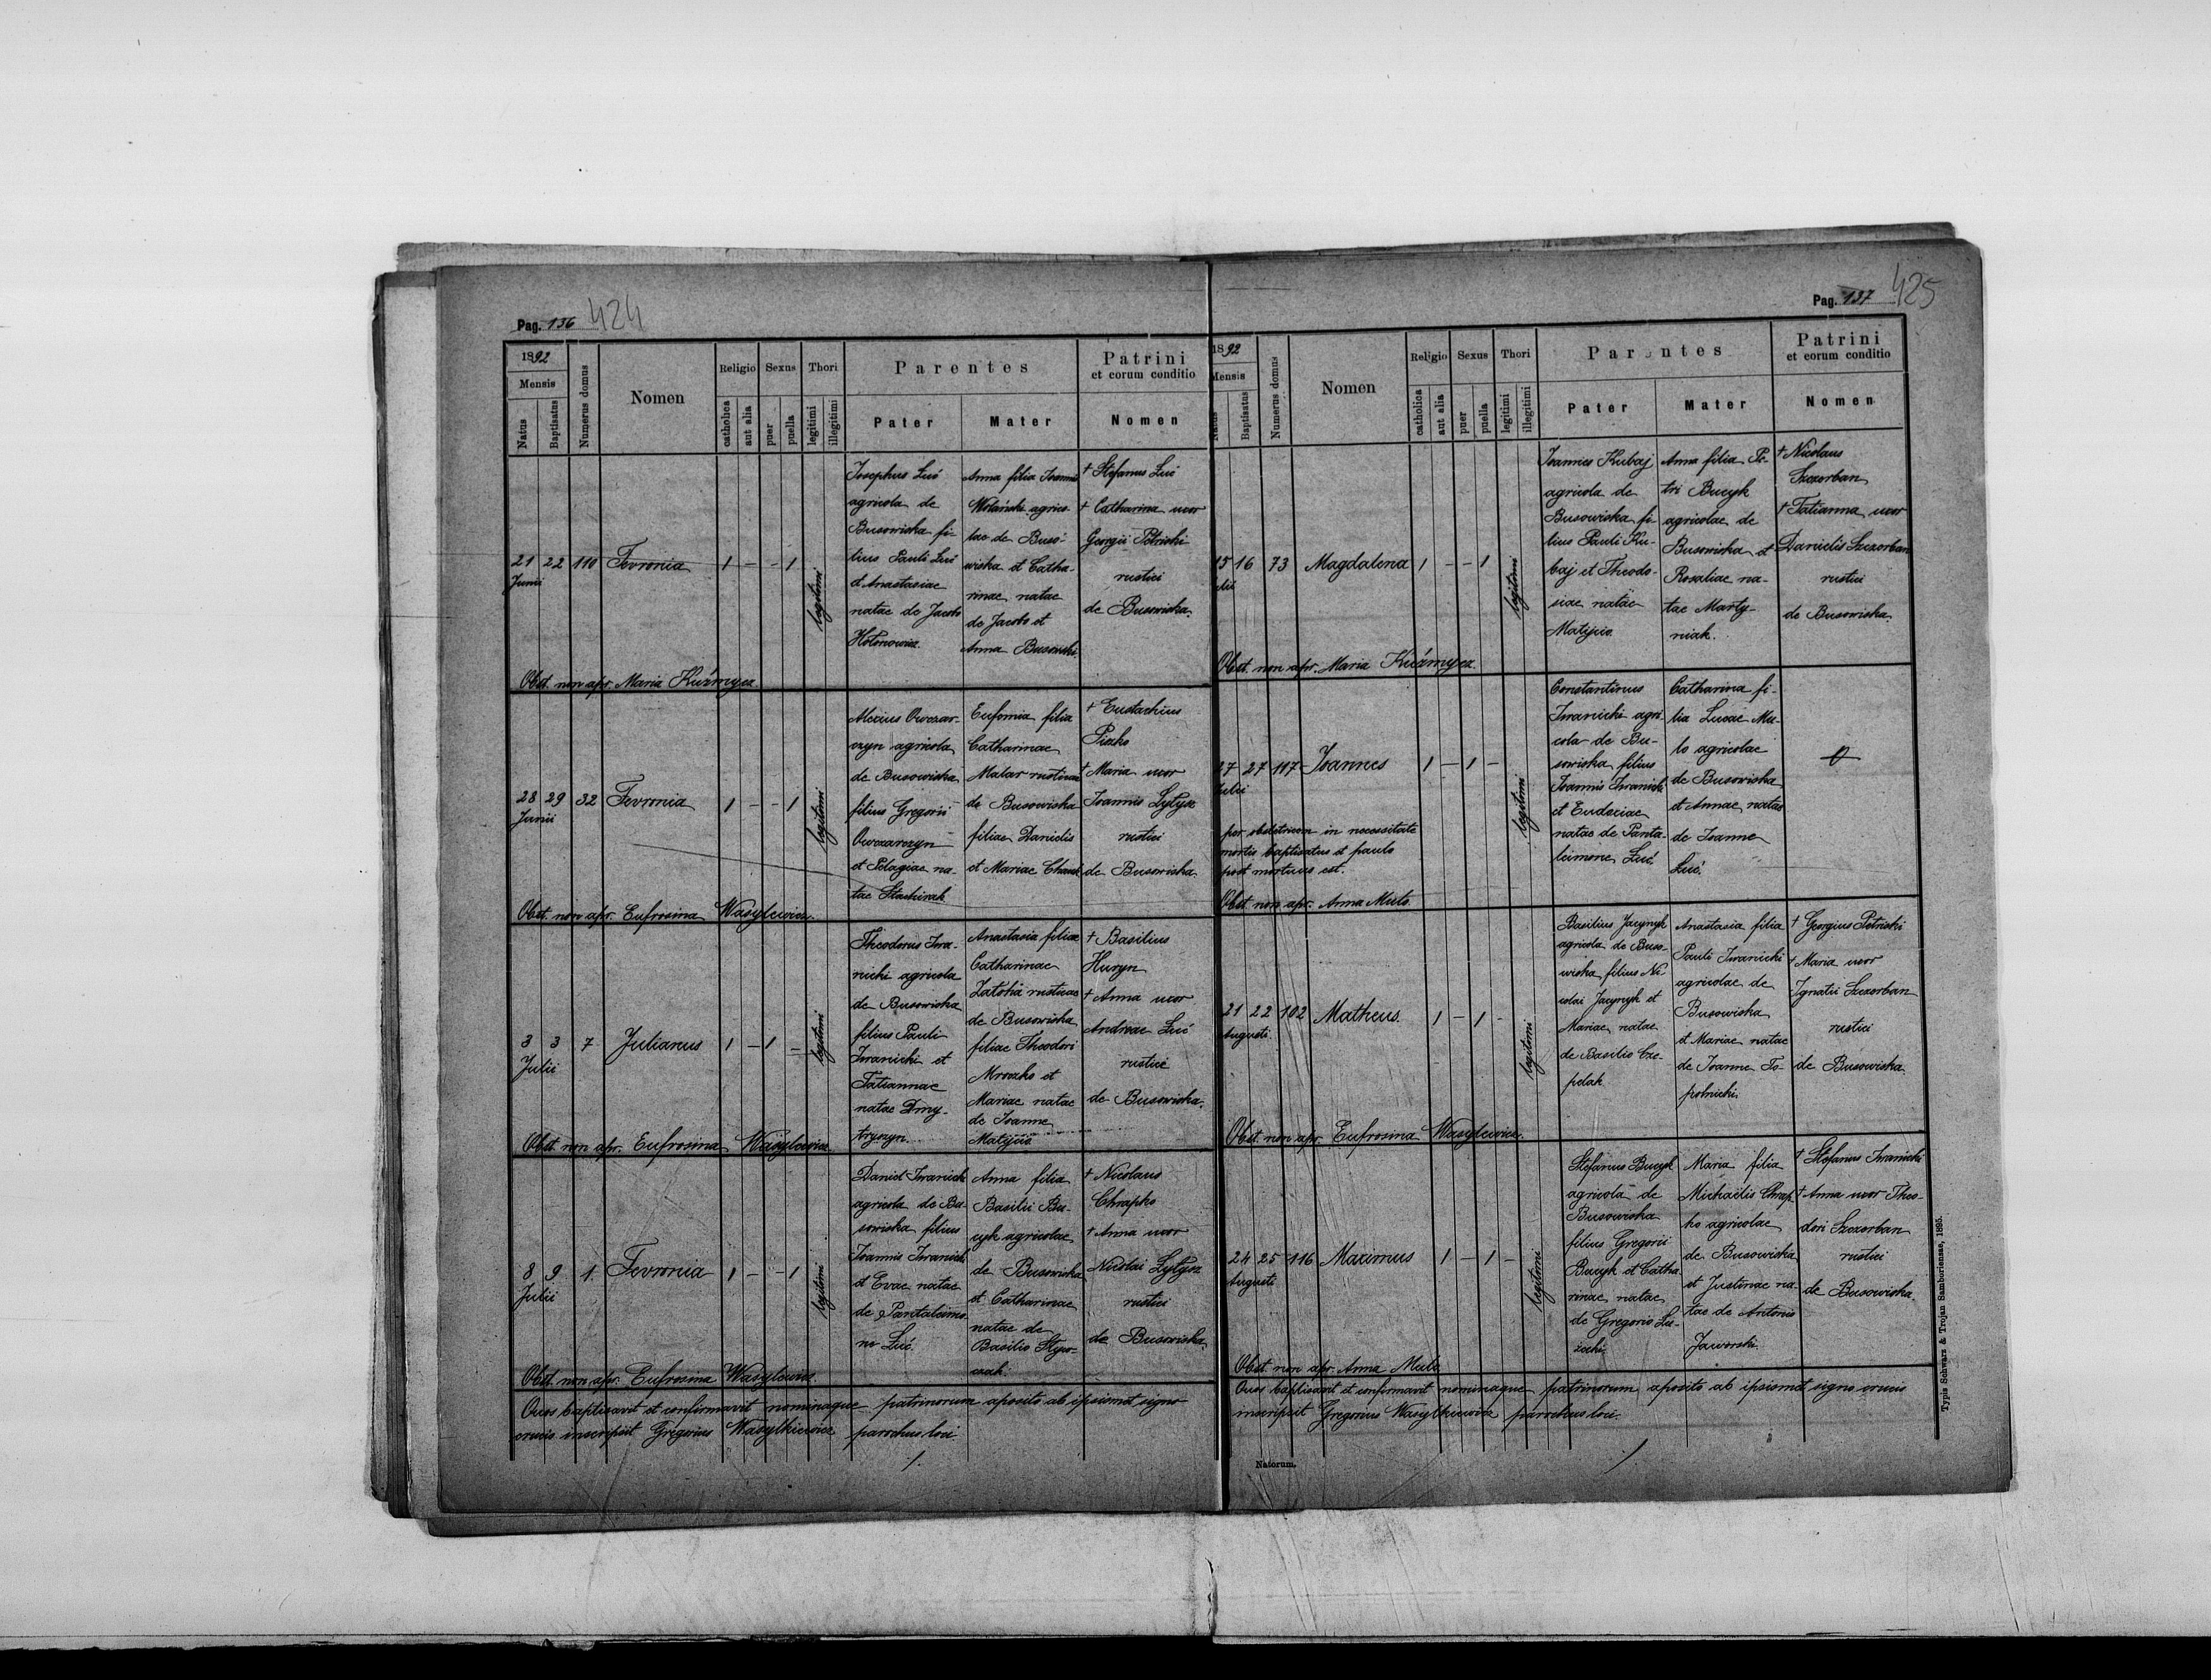 Pag. 136 424
1892
Mensis
Natus
Baptisatus
Numerus domus
Nomen
Religio
catholica
aut alia
Sexus
puer
puella
Thori
legitimi
illegitimi
Parentes
Pater
Mater
Patrini
et eorum conditio
Nomen
21 22 110 Fevronia 1 - - 1 legitimi
Junii
Josephus Luć
agricola de
Busowiska fi-
lius Pauli Luć
et Anastasiae
natae de Jacobo
Hołonowicz.
Anna filia Joannis
Wolański agrico-
lae de Buso-
wiska et Catha-
rinae natae
de Jacobo et
Anna Busowski.
† Stefanus Luć
† Catharina uxor
Georgii Petriski
rustici
de Busowiska.
Obst. non apr. Maria Kuźmycz.
28 29 32 Fevronia 1 - - 1 legitimi
Junii
Alexius Owczar-
czyn agricola
de Busowiska
filius Gregorii
Owczarczyn
et Pelagiae na-
tae Stachirak
Eufemia filia
Catharinae
Malar rusticae
de Busowiska
filiae Danielis
et Mariae
† Eustachius
Piszko
† Maria uxor
Joannis Łytysz
rustici
de Busowiska.
Obst. non apr. Eufrosina Wasylewicz.
3 3 7 Julianus 1 - 1 - legitimi
Julii
Theodorus Iwa-
nicki agricola
de Busowiska
filius Pauli
Iwanicki et
Tatiannae
natae Dmy-
tryszyn.
Anastasia filia
Catharinae
rusticae
de Busowiska
filiae Theodori
Mroczko et
Mariae natae
de Joanne
Matijcio.
† Basilius
Huryn
† Anna uxor
Andreae Luć
rustici
de Busowiska.
Obst. non apr. Eufrosina Wasylewicz.
8 9 1. Fevronia 1 - - 1 legitimi
Julii
Daniel Iwanicki
agricola de Bu-
sowiska filius
Joannis Iwanicki
et Evae natae
de Pantaleimo-
no Luć.
Anna filia
Basilii Bu-
cyk agricolae
de Busowiska
et Catharinae
natae de
Basilio
† Nicolaus
Chrapko
† Anna uxor
Nicolai Łytysz
rustici
de Busowiska.
Obst. non apr. Eufrosina Wasylewicz.
Quos baptisavit et confirmavit nominaque patrinorum aposito ab ipsismet signo
crucis inscripsit Gregorius Wasylkiewicz parochus loci.
Pag. 137 425
1892
Mensis
Natus
Baptisatus
Numerus domus
Nomen
Religio
catholica
aut alia
Sexus
puer
puella
Thori
legitimi
illegitimi
Parentes
Pater
Mater
Patrini
et eorum conditio
Nomen
15 16 73 Magdalena 1 - - 1 legitimi
Joannes Kubaj
agricola de
Busowiska fi-
lius Pauli Ku-
baj et Theodo-
siae natae
Matijcio.
Anna filia Pe-
tri Bucyk
agricolae de
Busowiska et
Rosaliae na-
tae Marty-
niak.
† Nicolaus
Szczorban
† Tatianna uxor
Danielis Szczorban
rustici
de Busowiska.
Obst. non apr. Maria Kuźmycz.
27 27 117 Joannes 1 - 1 - legitimi
per obstetricem in necessitate
mortis baptisatus et paulo
post mortuus est.
Constantinus
Iwanicki agri-
cola de Bu-
sowiska filius
Joannis Iwanicki
et Eudociae
natae de Panta-
leimone Luć.
Catharina fi-
lia Lucae Mu-
lo agricolae
de Busowiska
et Annae natae
de Joanne
Luć.
Obst. non apr. Anna Mulo.
21 22 102 Matheus. 1 - 1 - legitimi
Augusti
Basilius Jacynyk
agricola de Buso-
wiska filius Ni-
colai Jacynyk et
Mariae natae
de Basilio Cze-
pelak.
Anastasia filia
Pauli Iwanicki
agricolae de
Busowiska
et Mariae natae
de Joanne To-
polnicki.
† Georgius Petriski
† Maria uxor
Ignatii Szczorban
rustici
de Busowiska.
Obst. non apr. Eufrosina Wasylewicz.
24 25 116 Maximus 1 - 1 - legitimi
Augusti
Stefanus Bucyk
agricola de
Busowiska
filius Gregorii
Bucyk et Catha-
rinae natae
de Gregorio
Maria filia
Michaëlis Chrap-
ko agricolae
de Busowiska
et Justinae na-
tae de Antonio
Jaworski.
† Stefanus Iwanicki
† Anna uxor Theo-
dori Szczorban
rustici
de Busowiska.
Obst. non apr. Anna Mulo
Quos baptisavit et confirmavit nominaque patrinorum aposito ab ipsismet signo crucis
inscripsit Gregorius Wasylkiewicz parochus loci.
Natorum.
Typis Schwarz & Trojan Samboriensas, 1895.